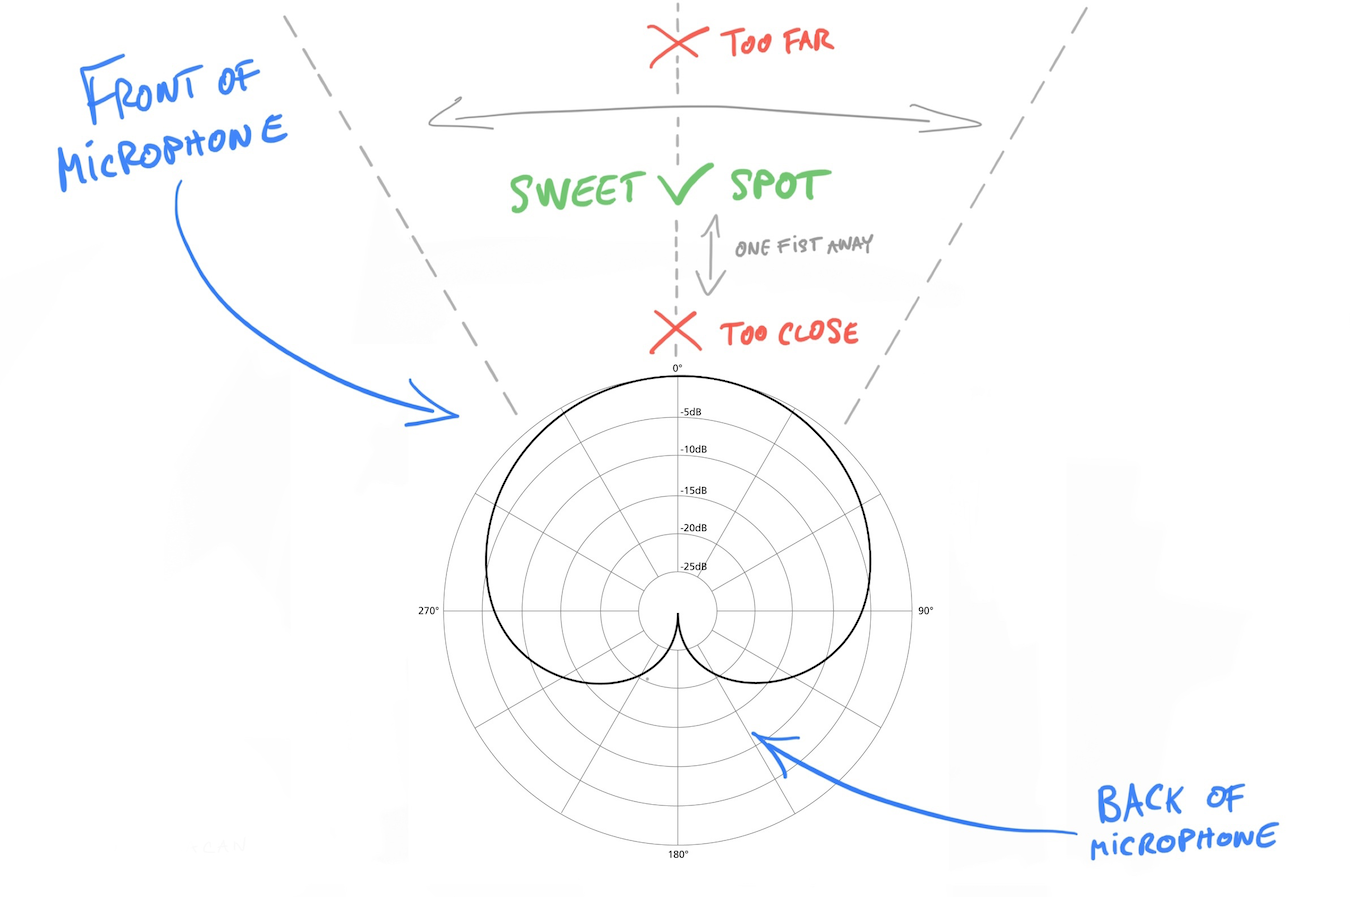 TOO FAR
FRONT OF
MiCROPHONE
SWEET SPOT
ONE FiST AWAY
TOO CLOSE
0°
-5dB
-10dB
-15dB
-20dB
-25dB
270°
90°
180°
BACK OF
MiCROPHONE